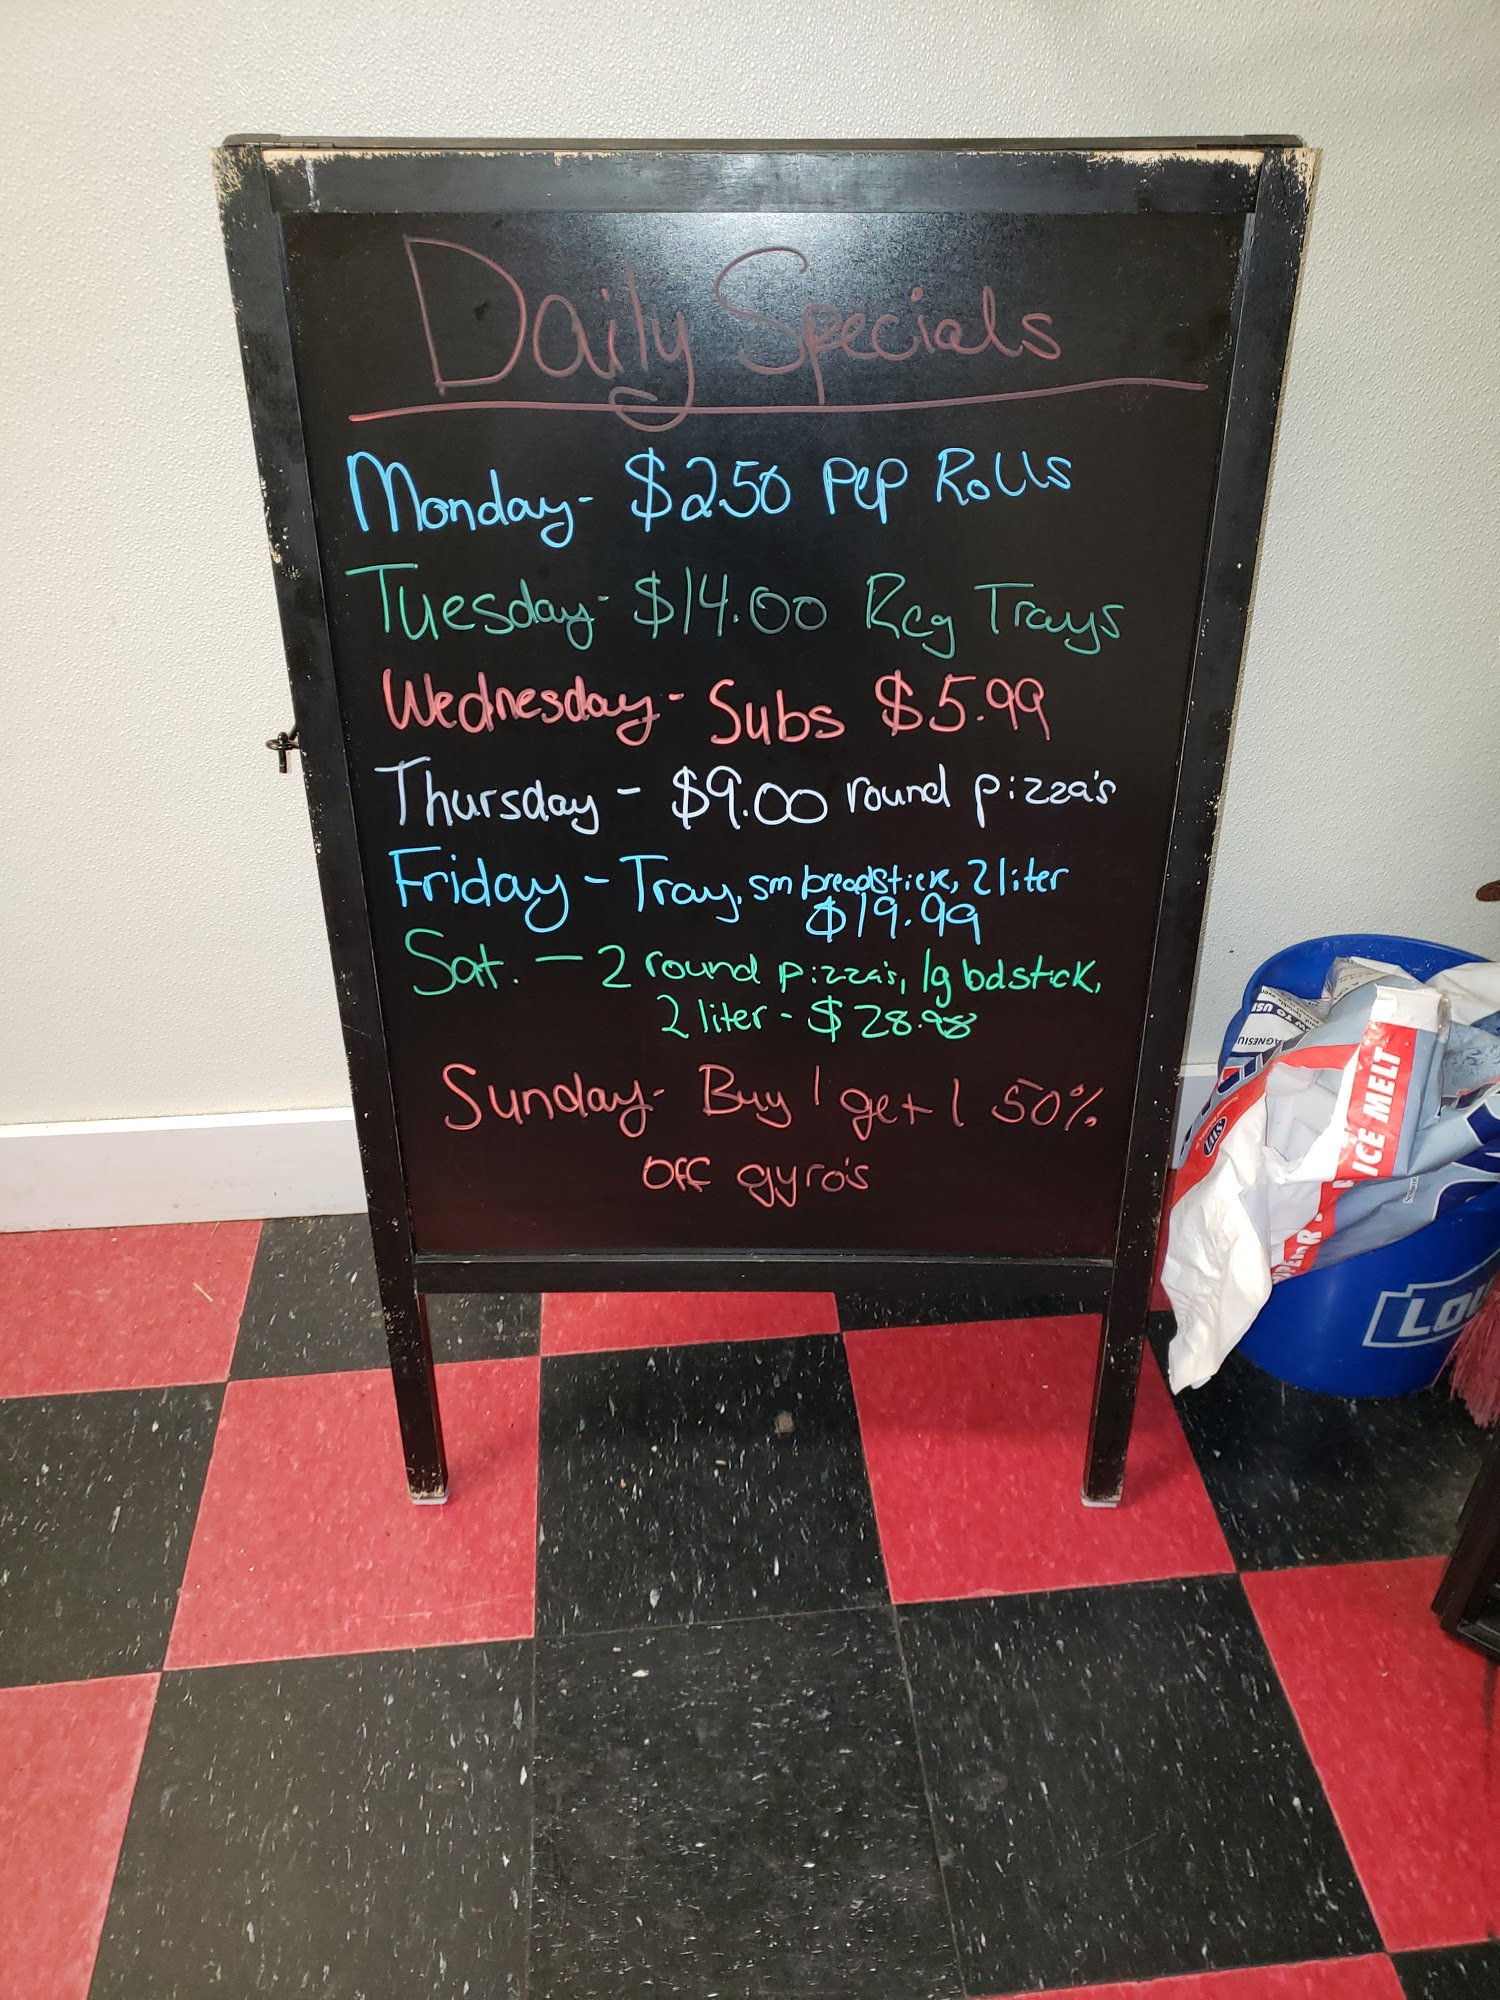 Daily Specials
Monday- $250 PeP Rolls
Tuesday- $14.00 Reg Trays
Wednesday- Subs $5.99
Thursday - $9.00 round pizza's
Friday - Tray, sm breadstick, 2 liter
$19.99
Sat. - 2 round pizza's, lg bdstick,
2 liter - $28.98
Sunday- Buy 1 get 1 50%
off gyro's
ICE MELT